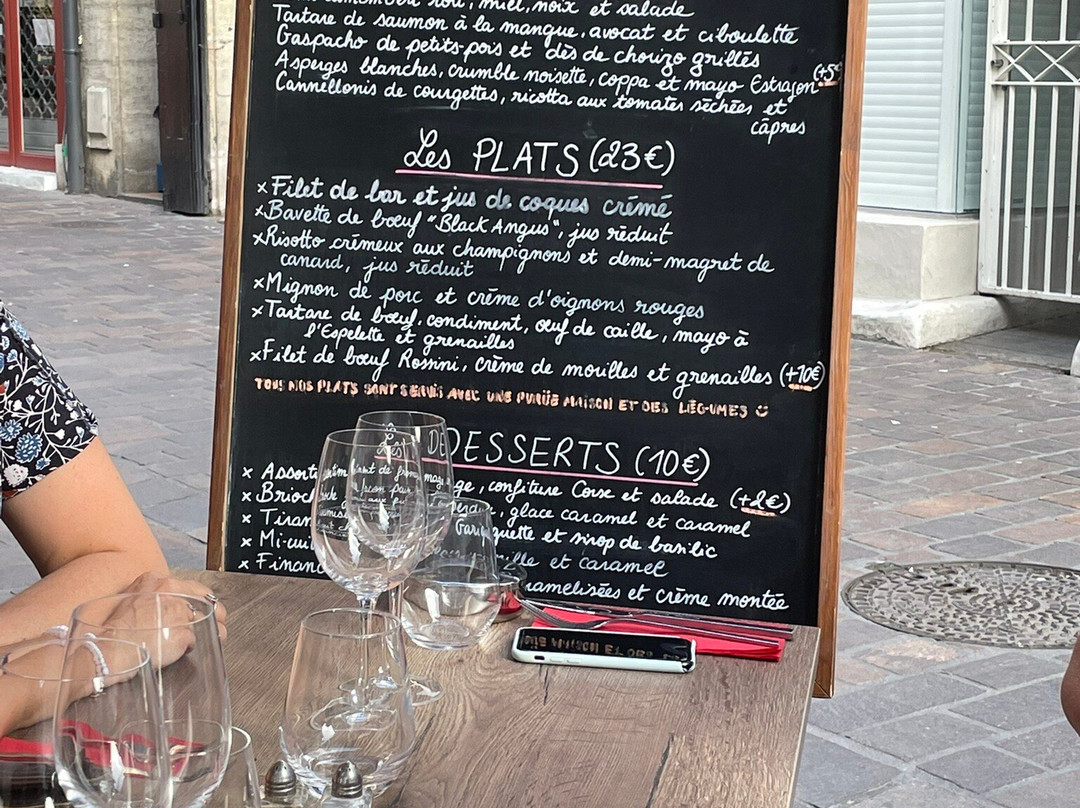 miel, noix et salade
Tartare de saumon à la mangue, avocat et ciboulette
Gaspacho de petits-pois et dés de chorizo grillés
Asperges blanches, crumble noisette, coppa et mayo Estragon (+5€
Cannellonis de courgettes, ricotta aux tomates séchées et
câpres
Les PLATS (23€)
x Filet de bar et jus de coques crémé
x Bavette de bœuf "Black Angus", jus réduit
x Risotto crémeux aux champignons et demi-magret de
canard, jus réduit
x Mignon de porc et crème d'oignons rouges
x Tartare de bœuf, condiment, œuf de caille, mayo à
l'Espelette et grenailles
x Filet de bœuf Rossini, crème de morilles et grenailles (+10€)
TOUS NOS PLATS SONT SERVIS AVEC UNE PURÉE MAISON ET DES LÉGUMES
DESSERTS (10€)
x Assort ge, confiture Corse et salade (+2€)
x Brioc perdue, glace caramel et caramel
x Tiram Gariguette et sirop de basilic
x Mi-cui ille et caramel
x Financ ramelisées et crème montée